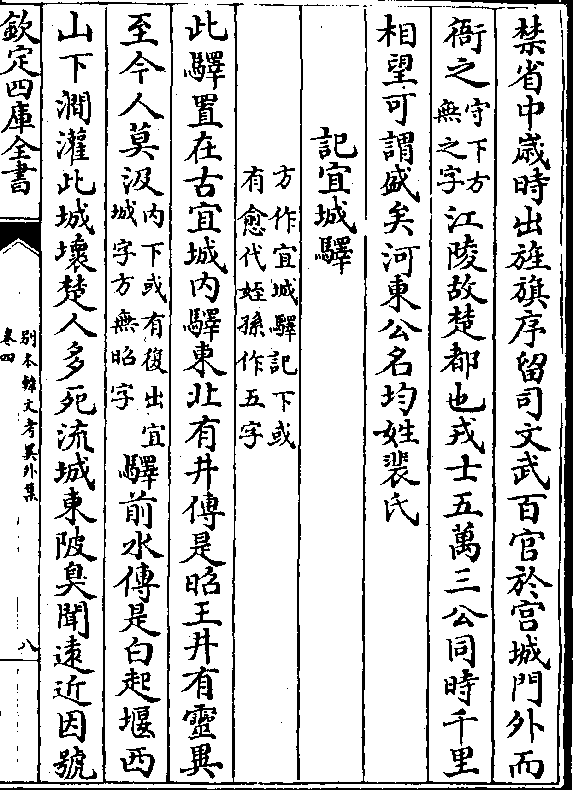 禁省中歳時出旌旗序留司文武百官於宫城門外而
衙之守下方無之字江陵故楚都也戎士五萬三公同時千里
相望可謂盛矣河東公名均姓裴氏
記宜城驛
方作宜城驛記下或
有愈代姪孫作五字
此驛置在古宜城内驛東北有井傳是昭王井有靈異
至今人莫汲内下或有復出宜城字方無昭字驛前水傳是白起堰西
山下澗灌此城壞楚人多死流城東陂臭聞逺近因號
欽定四庫全書
别本韓文考異外集
卷四
八